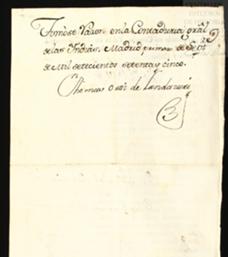 Tomóse Razon en la Contaduria gral
de las Indias. Madrid primero de Sepre
de Mil setecientos setenta y cinco.
Thomas Ortiz de Landazuri